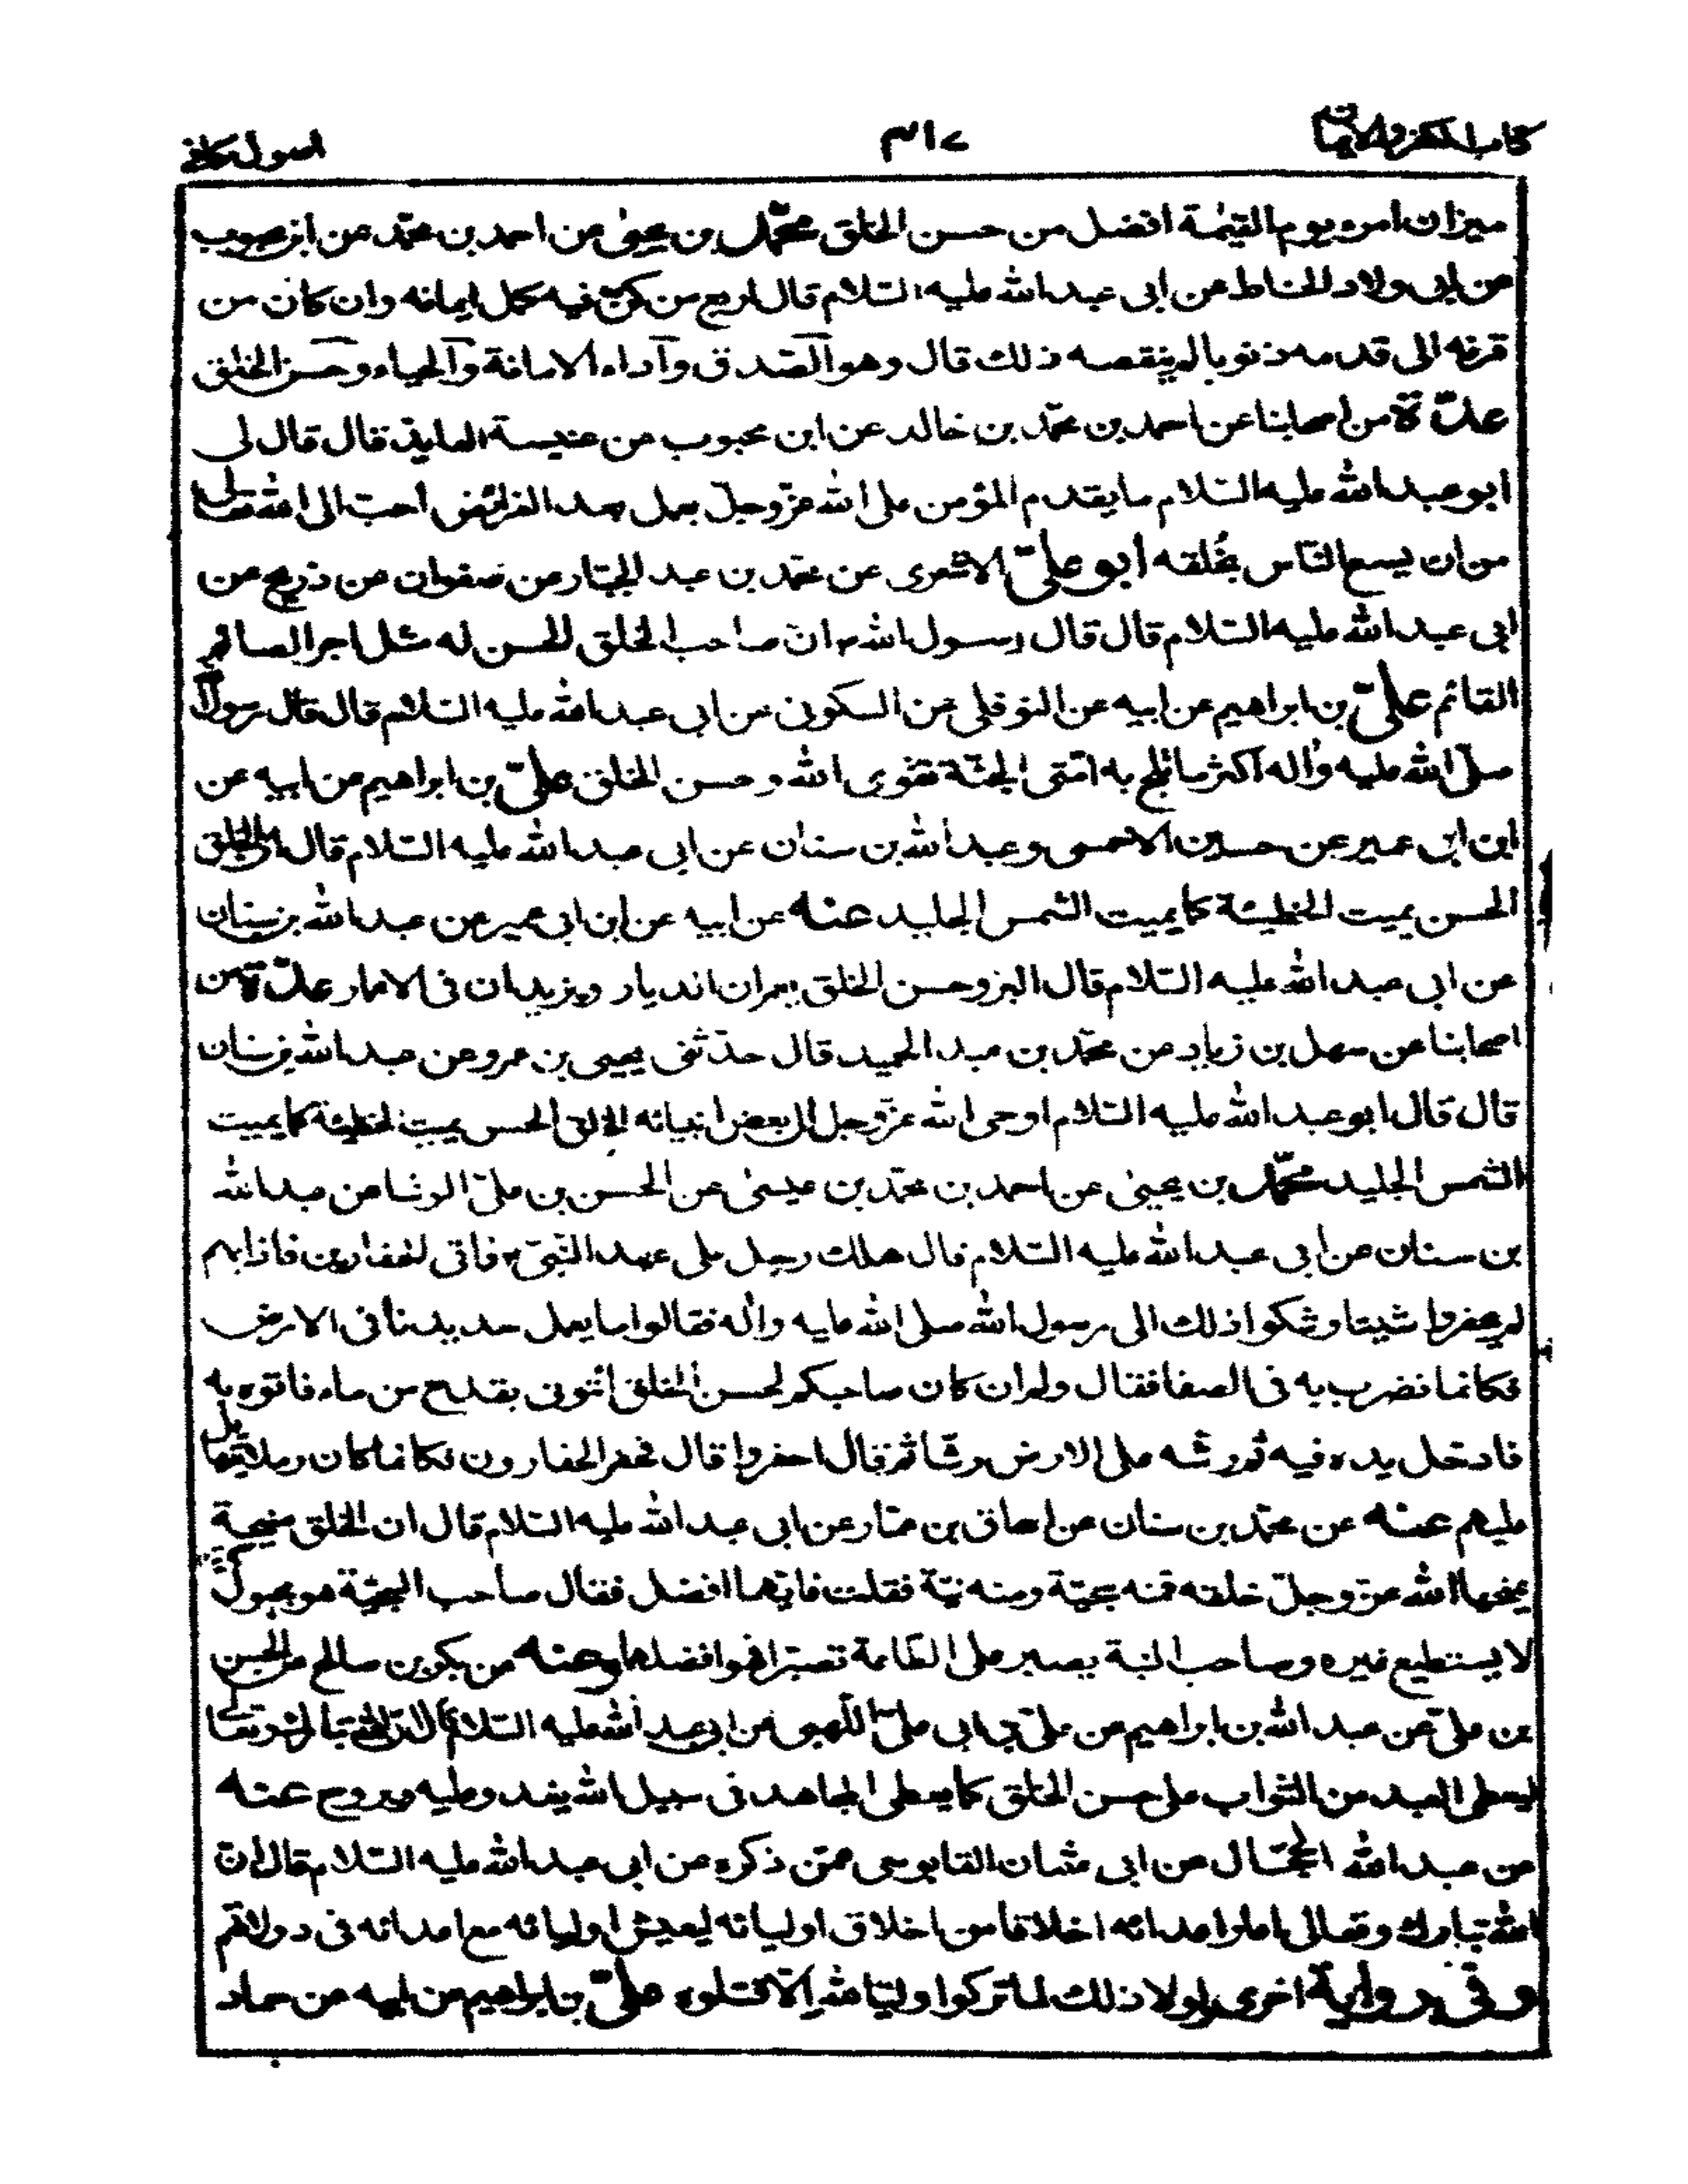 كتاب الكفر والايمان ٣١٧ اصول كافى
ميزان امرء يوم القيٰمة افضل من حسن الخلق محمّد بن يحيىٰ عن احمد بن محمّد عن ابن محبوب
عن ابى ولاد الحناط عن ابى عبد الله عليه السّلام قال اربع من كنّ فيه كمل ايمانه وان كان من
قرنه الى قدمه ذنوبا لم ينقصه ذلك قال وهو الصّدق وآداء الامانة والحياء وحسن الخلق
عدّة من اصحابنا عن احمد بن محمّد بن خالد عن ابن محبوب عن عنبسة العابد قال قال لى
ابو عبد الله عليه السّلام ما يقدم المؤمن على الله عزّ وجلّ بعمل بعد الفرائض احبّ الى الله تعالى
من ان يسع النّاس بخُلقه ابو علىّ الاشعرى عن محمّد بن عبد الجبّار عن صفوان عن ذريح عن
ابى عبد الله عليه السّلام قال قال رسول الله ص انّ صاحب الخلق الحسن له مثل اجر الصائم
القائم علىّ بن ابراهيم عن ابيه عن النوفلى عن السكونى عن ابى عبد الله عليه السّلام قال قال رسول الله
صلّى الله عليه وآله اكثر ما تلج به امّتى الجنّة تقوى الله وحسن الخلق علىّ بن ابراهيم عن ابيه عن
ابن ابى عمير عن حسين الاحمسى وعبد الله بن سنان عن ابى عبد الله عليه السّلام قال انّ الخلق
الحسن يميت الخطيئة كما يميت الشمس الجليد عنه عن ابيه عن ابن ابى عمير عن عبد الله بن سنان
عن ابى عبد الله عليه السّلام قال البرّ وحسن الخلق يعمران الديار ويزيدان فى الاعمار عدّة من
اصحابنا عن سهل بن زياد عن محمّد بن عبد الحميد قال حدّثنى يحيى بن عمرو عن عبد الله بن سنان
قال قال ابو عبد الله عليه السّلام اوحى الله عزّ وجلّ الى بعض انبيائه الخلق الحسن يميت الخطيئة كما يميت
الشمس الجليد محمّد بن يحيىٰ عن احمد بن محمّد بن عيسىٰ عن الحسن بن علىّ الوشا عن عبد الله
بن سنان عن ابى عبد الله عليه السّلام قال هلك رجل على عهد النّبىّ ص فاتى الحفارين فاذا بهم
لم يحفروا شيئا وشكوا ذلك الى رسول الله صلى الله عليه وآله فقالوا ما يعمل حديدنا فى الارض
فكانما نضرب به فى الصفا فقال ولم ان كان صاحبكم لحسن الخلق ائتونى بقدح من ماء فاتوه به
فادخل يده فيه ثم رشه على الارض رشّا ثم قال احفروا قال فحفر الحفارون فكانما كان رملا يتهايل
عليهم عنه عن محمّد بن سنان عن اسحاق بن عمّار عن ابى عبد الله عليه السّلام قال ان الخلق منيحة
يمنحها الله عزّ وجلّ خلقه فمنه سجيّة ومنه نيّة فقلت فايّهما افضل فقال صاحب السجيّة هو مجبول
لا يستطيع غيره وصاحب النيّة يصبر على الطّاعة تصبّرا فهو افضلهما وعنه عن بكر بن صالح عن الحسن
بن علىّ عن عبد الله بن ابراهيم عن علىّ بن ابى علىّ اللّهبى عن ابى عبد الله عليه السّلام قال ان الله تبارك وتعالى
ليعطى العبد من الثواب على حسن الخلق كما يعطى المجاهد فى سبيل الله يغدو عليه ويروح عنه
عن عبد الله الحجّال عن ابى عثمان القابوسى عمّن ذكره عن ابى عبد الله عليه السّلام قال ان
الله تبارك وتعالى اعار اعدائه اخلاقا من اخلاق اوليائه ليعيش اوليائه مع اعدائه فى دولاتهم
وفى رواية اخرى ولولا ذلك لما تركوا وليّا لله الّا قتلوه علىّ بن ابراهيم عن ابيه عن حماد